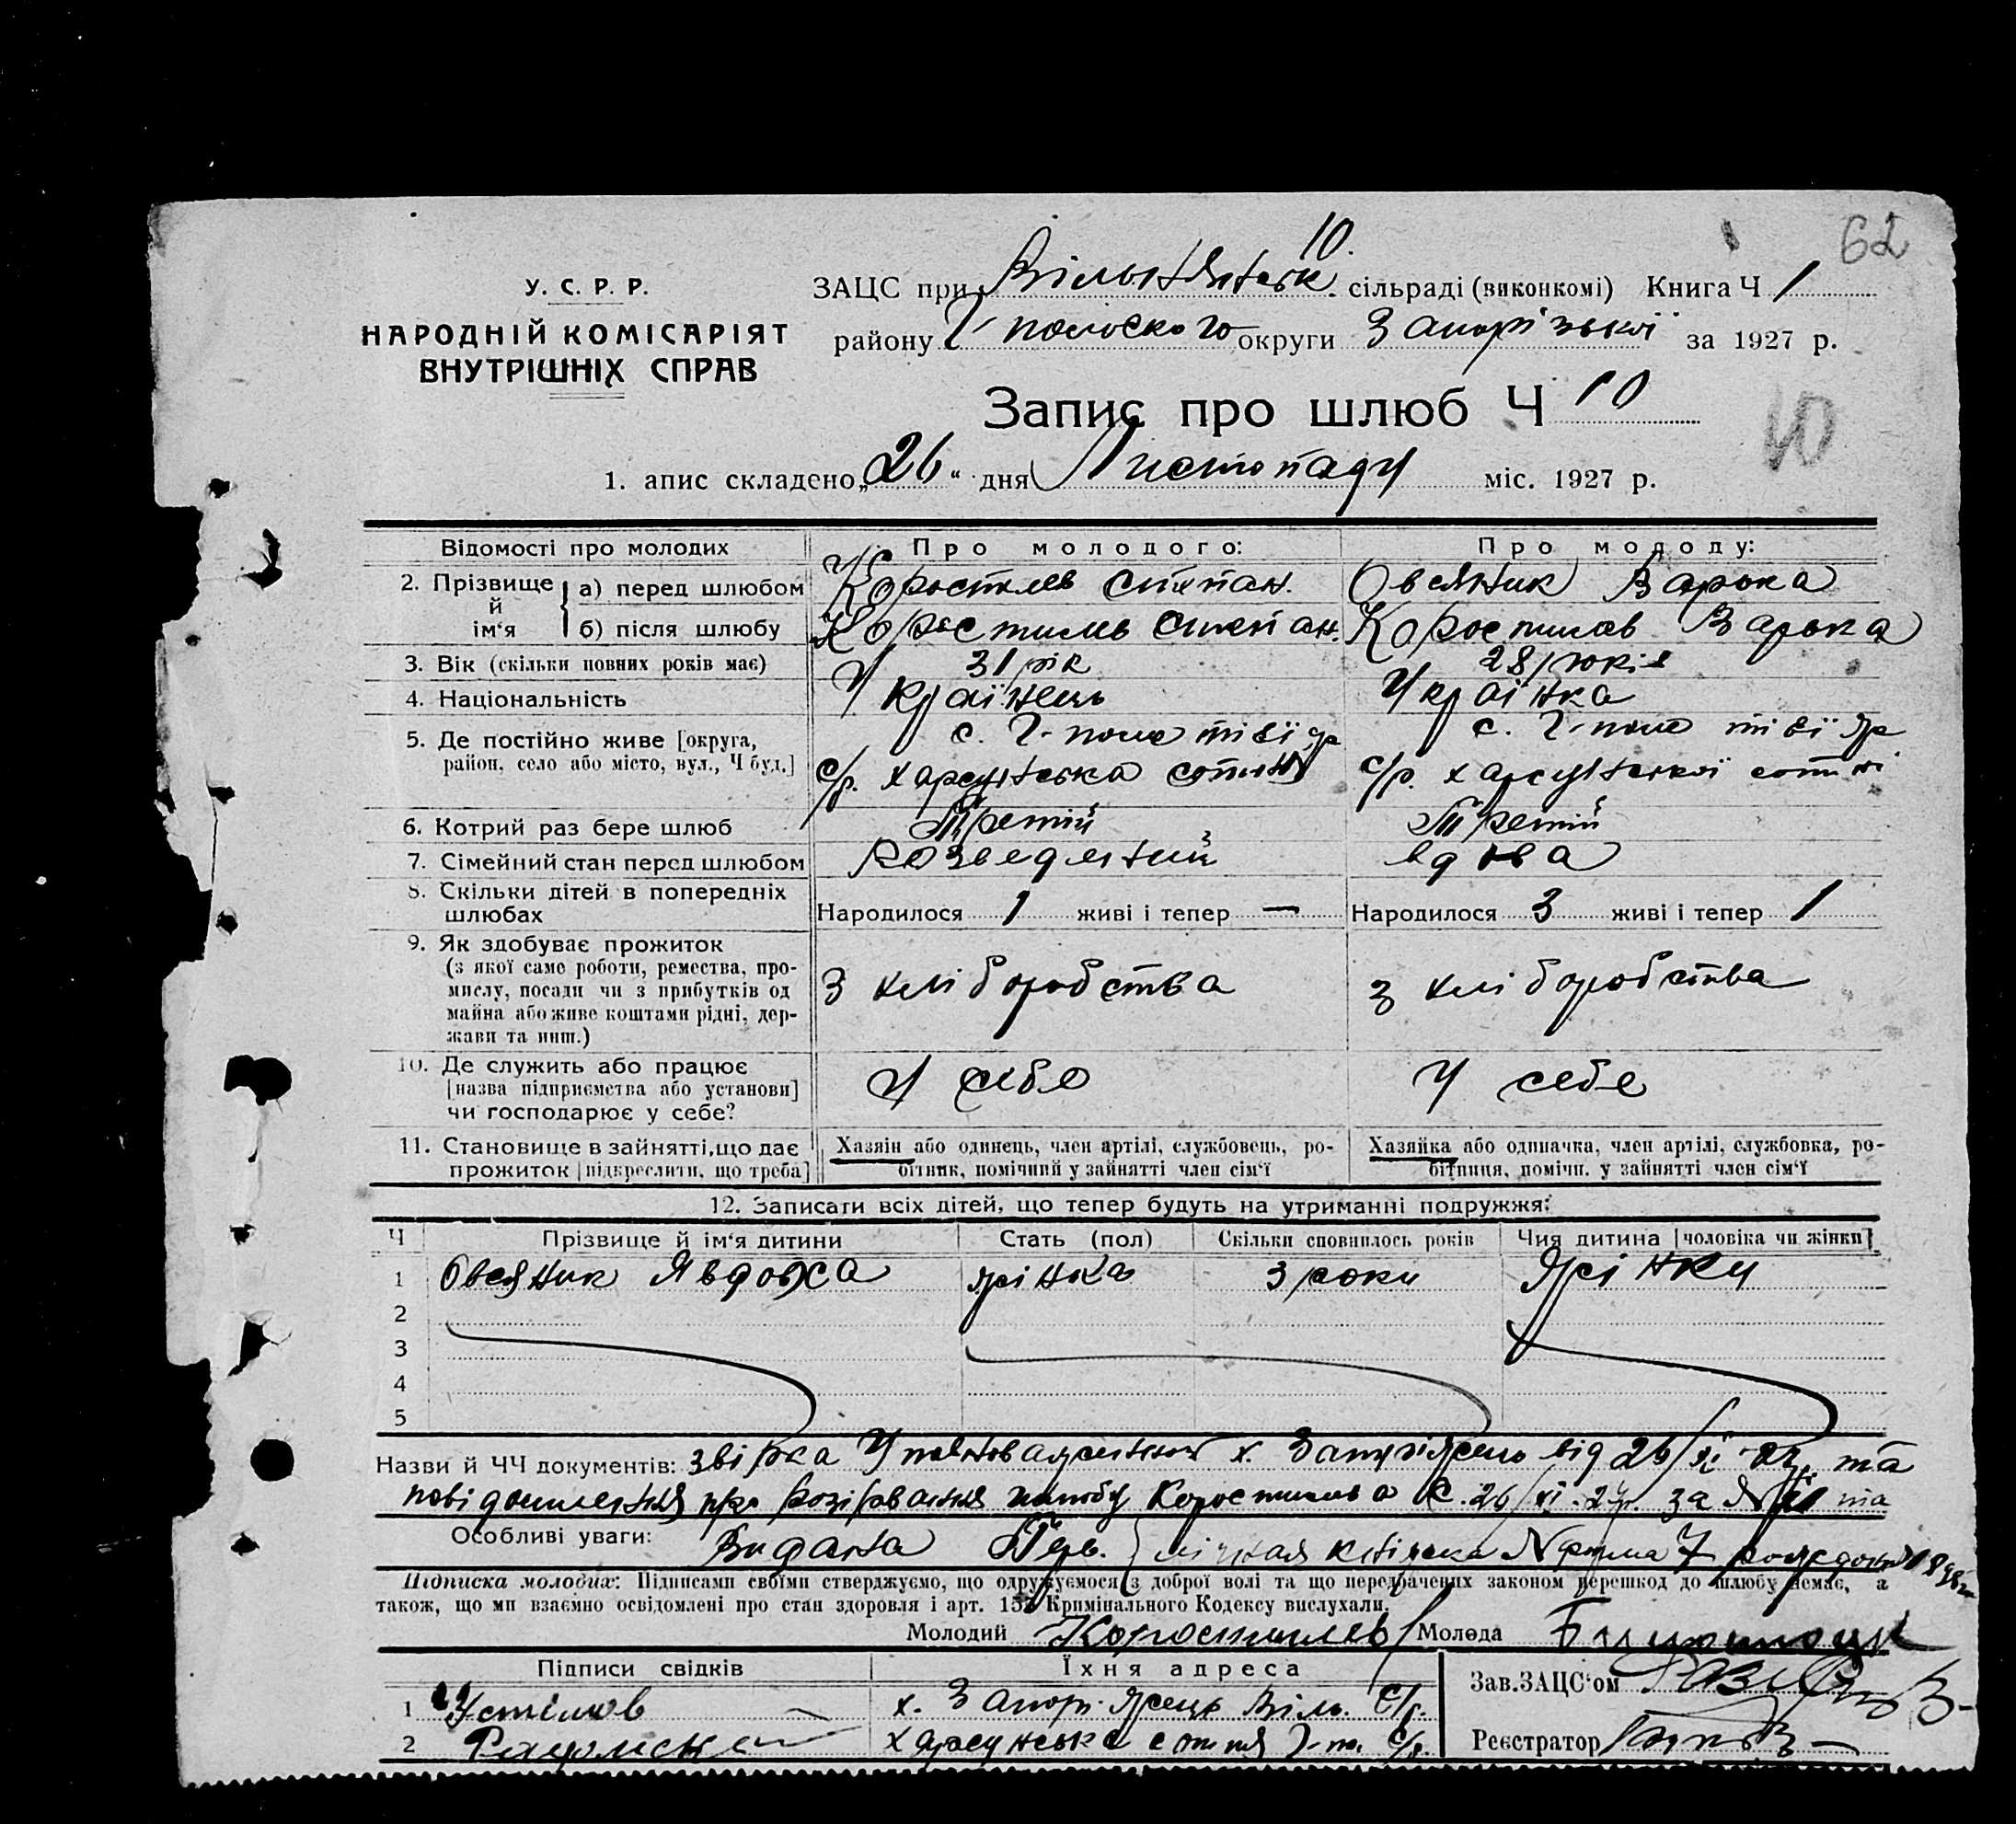 62
10.
У. С. Р. Р.
НАРОДНІЙ КОМІСАРІЯТ
ВНУТРІШНІХ СПРАВ
ЗАЦС при сільраді (виконкомі) Книга Ч 1
району Г-польского округи Запорізької за 1927 р.
Запис про шлюб Ч 10
10
1. апис складено „26“ дня Листопаду міс. 1927 р.
Відомості про молодих Про молодого: Про молоду:
2. Прізвище й ім‘я
а) перед шлюбом Коростилев Степан. Овсяник Варка
б) після шлюбу Коростилев Степан. Коростилев Варька
3. Вік (скільки повних років має) 31 рік 28 років
4. Національність Українець Українка
5. Де постійно живе [округа, с. Г-поле с. Г-поле
район, село або місто, вул., Ч буд.] с/р. сотня с/р. сотні
6. Котрий раз бере шлюб Третій Третій
7. Сімейний стан перед шлюбом Розведений вдова
8. Скільки дітей в попередніх
шлюбах Народилося 1 живі і тепер — Народилося 3 живі і тепер 1
9. Як здобуває прожиток
(з якої саме роботи, ремества, про-
мислу, посади чи з прибутків од З хліборобства З хліборобства
майна або живе коштами рідні, дер-
жави та инш.)
10. Де служить або працює
[назва підприємства або установи] У себе У себе
чи господарює у себе?
11. Становище в зайнятті, що дає Хазяін або одинець, член артілі, службовець, ро- Хазяйка або одиначка, член артілі, службовка, ро-
прожиток [підкреслити, що треба] бітник, помічний у зайнятті член сім‘ї бітниця, помічн. у зайнятті член сім‘ї
12. Записати всіх дітей, що тепер будуть на утриманні подружжя:
Ч Прізвище й ім‘я дитини Стать (пол) Скільки сповнилось років Чия дитина [чоловіка чи жінки]
1 Овсяник Явдоха жінка 3 роки жінки
2
3
4
5
Назви й ЧЧ документів: від 26/XI-27р. та
повідомлення про розірвання шлюбу Коростилева С. 26/XI-27р. за №
Особливі уваги: Видана
Підписка молодих: Підписами своїми стверджуємо, що одружуємося з доброї волі та що передбачених законом перешкод до шлюбу немає, а
також, що ми взаємно освідомлені про стан здоровля і арт. 155 Кримінального Кодексу вислухали.
Молодий Коростилев Молода
Підписи свідків Їхня адреса Зав. ЗАЦС‘ом
1 Устімов х. Віль. С/р.
2 сотня Г-п. С/р. Реєстратор